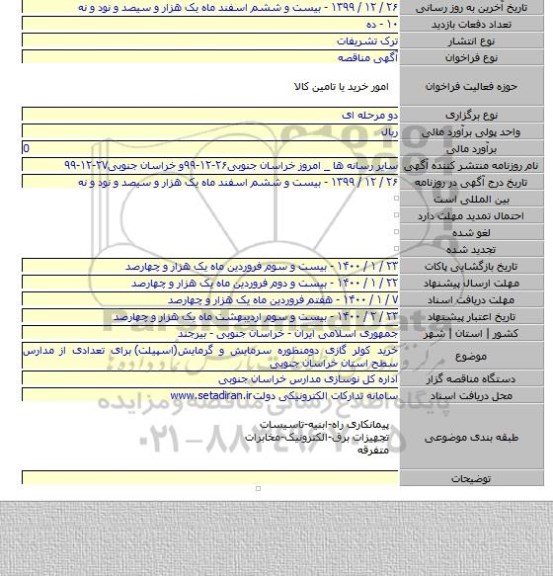 تاریخ آخرین به روز رسانی ۲۶ / ۱۲ / ۱۳۹۹ - بیست و ششم اسفند ماه یک هزار و سیصد و نود و نه
تعداد دفعات بازدید ۱۰ - ده
نوع انتشار ترک تشریفات
نوع فراخوان آگهی مناقصه
حوزه فعالیت فراخوان امور خرید یا تامین کالا
نوع برگزاری دو مرحله ای
واحد پولی برآورد مالی ریال
برآورد مالی 0
نام روزنامه منتشر کننده آگهی سایر رسانه ها _ امروز خراسان جنوبی۲۶-۱۲-۹۹و خراسان جنوبی۲۷-۱۲-۹۹
تاریخ درج آگهی در روزنامه ۲۶ / ۱۲ / ۱۳۹۹ - بیست و ششم اسفند ماه یک هزار و سیصد و نود و نه
بین المللی است
احتمال تمدید مهلت دارد
لغو شده
تجدید شده
تاریخ بازگشایی پاکات ۲۳ / ۱ / ۱۴۰۰ - بیست و سوم فروردین ماه یک هزار و چهارصد
مهلت ارسال پیشنهاد ۲۲ / ۱ / ۱۴۰۰ - بیست و دوم فروردین ماه یک هزار و چهارصد
مهلت دریافت اسناد ۷ / ۱ / ۱۴۰۰ - هفتم فروردین ماه یک هزار و چهارصد
تاریخ اعتبار پیشنهاد ۲۳ / ۲ / ۱۴۰۰ - بیست و سوم اردیبهشت ماه یک هزار و چهارصد
کشور | استان | شهر جمهوری اسلامی ایران - خراسان جنوبی - بیرجند
موضوع خرید کولر گازی دومنظوره سرمایش و گرمایش(اسپیلت) برای تعدادی از مدارس
سطح استان خراسان جنوبی
دستگاه مناقصه گزار اداره کل نوسازی مدارس خراسان جنوبی
محل دریافت اسناد سامانه تدارکات الکترونیکی دولتwww.setadiran.ir
پایگاه اطلاع رسانی مناقصه و مزایده
طبقه بندی موضوعی پیمانکاری راه-ابنیه-تاسیسات
تجهیزات برق-الکترونیک-مخابرات
متفرقه
توضیحات